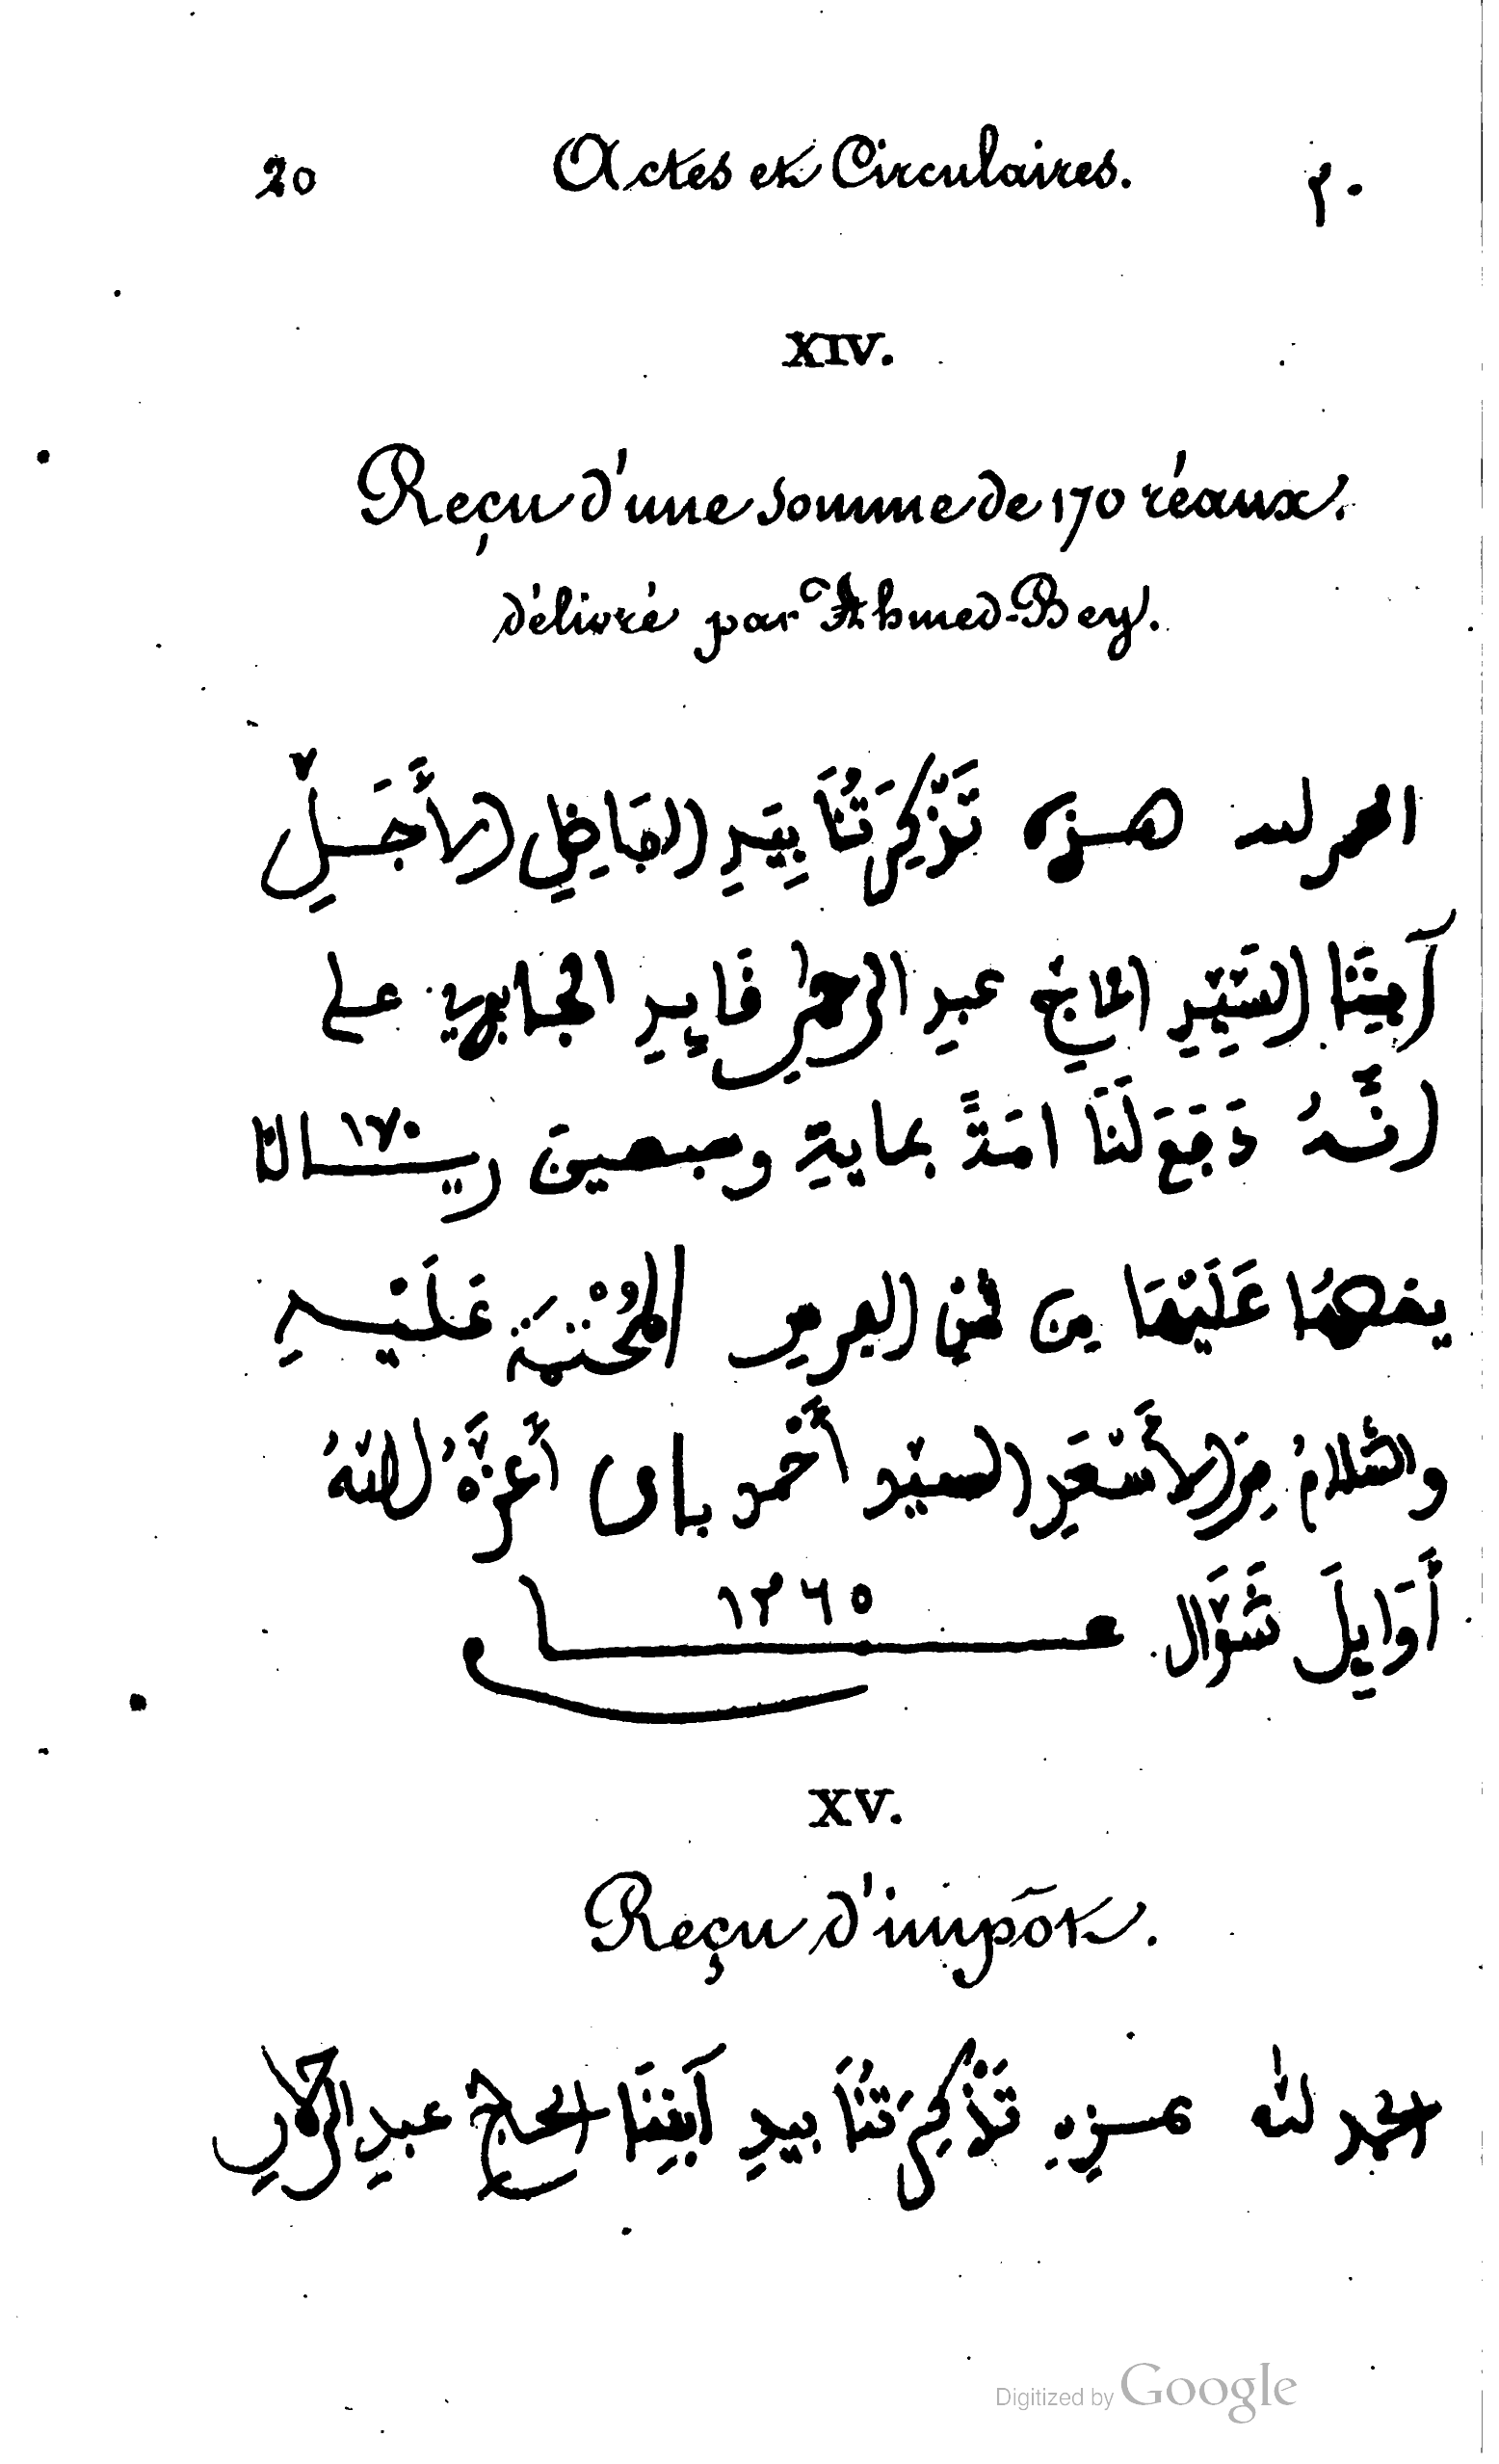 20 Actes et Circulaires. ٢٠
XIV.
Reçu d'une somme de 170 réaux.
délivré par Ahmed-Bey.
الحمد لله هذه تَذْكِرَتُنَا بِيَدِ الڢَاضِلِ الأَجَلِّ
آمِينَنَا السَّيِّدِ الحَاجِّ عبدِ الرحمٰنِ فَايِدِ الجابري على
أنَّهُ دَفَعَ لَنَا مِائَةً وسبعينَ ريـ١٧٠ـالا
عَلَيْهَا مِن ثمنِ المُحْتَمَةِ عَلَيْهِ
والسَّلامُ مِنَ الأَسْعَدِ السيّد أَحْمد باى أَعَزَّهُ اللهُ
أَوَايِلَ شَوَّال عـــ١٢٦٥ـــام
XV.
Reçu d'impôt.
الحمد لله هذهِ تَذْكِرَتُنَا بيدِ آمِينِنَا الحاجّ عبدِ الرحمٰنِ
Digitized by Google